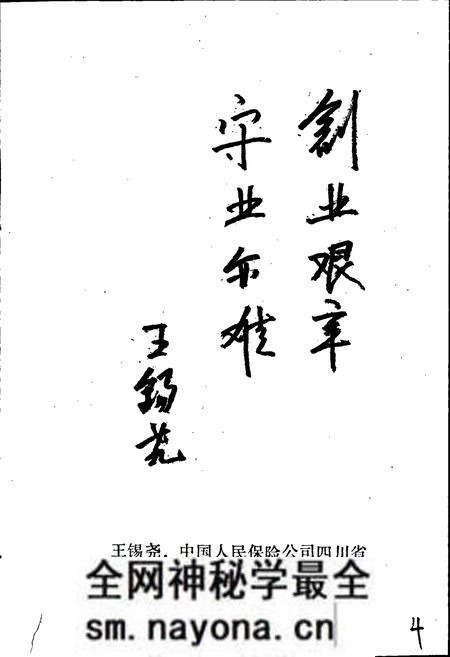 創业艰辛
守业亦难
王锡尧
王锡尧，中国人民保险公司四川省
全网神秘学最全
sm.nayona.cn
4